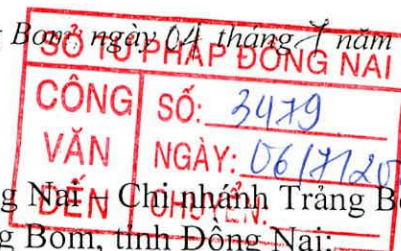 Bom, ngày 04 tháng 7 năm
SỞ TƯ PHÁP ĐỒNG NAI
CÔNG VĂN ĐẾN
SỐ: 3479
NGÀY: 06/7/20
CHUYỂN:
ng Nai – Chi nhánh Trảng B
ng Bom, tỉnh Đồng Nai;